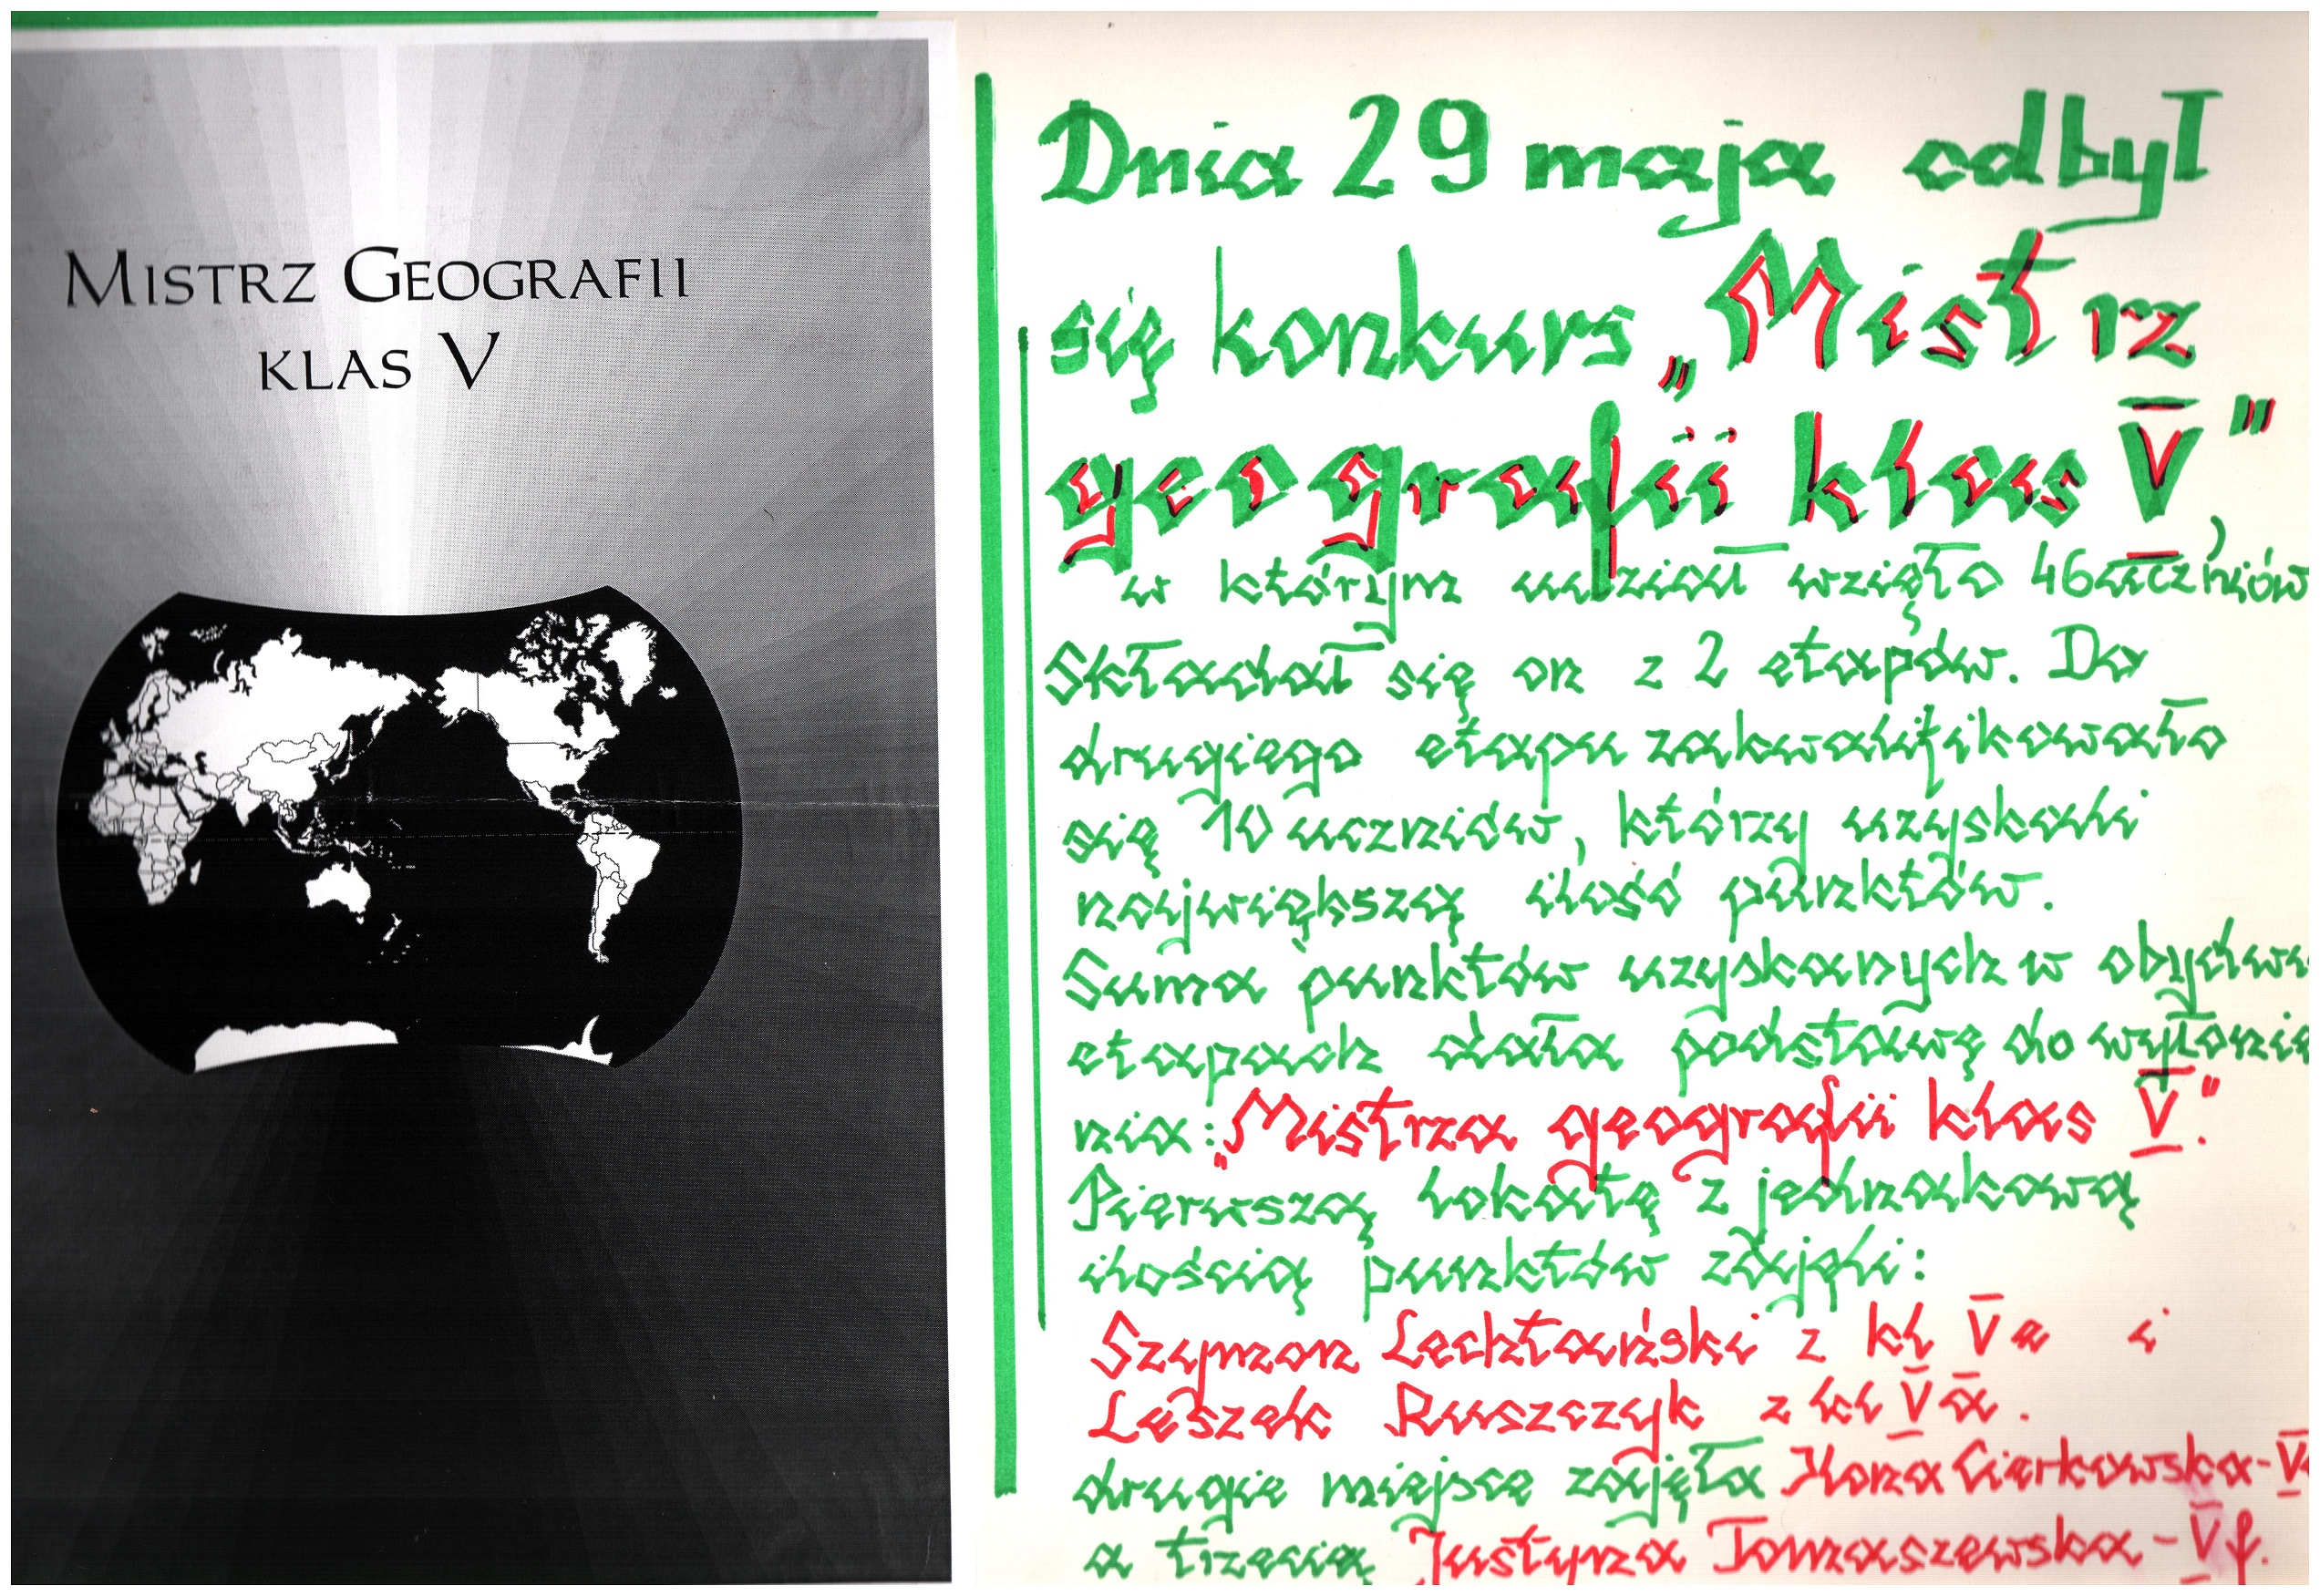 MISTRZ GEOGRAFII
KLAS V
Dnia 29 maja odbył
się konkurs „Mistrz
geografii klas V",
w którym udział wzięło 46 uczniów
Składał się on z 2 etapów. Do
drugiego etapu zakwalifikowało
się 10 uczniów, którzy uzyskali
największą ilość punktów.
Suma punktów uzyskanych w obydwu
etapach dała podstawę do wyłonie
nia: „Mistrza geografii klas V".
Pierwszą lokatę z jednakową
ilością punktów zajęli:
Szymon Lechtański z kl V e i
Leszek Ruszczyk z kl V a.
drugie miejsce zajęła Ilona Cierkowska - V
a trzecie Justyna Tomaszewska - V f.